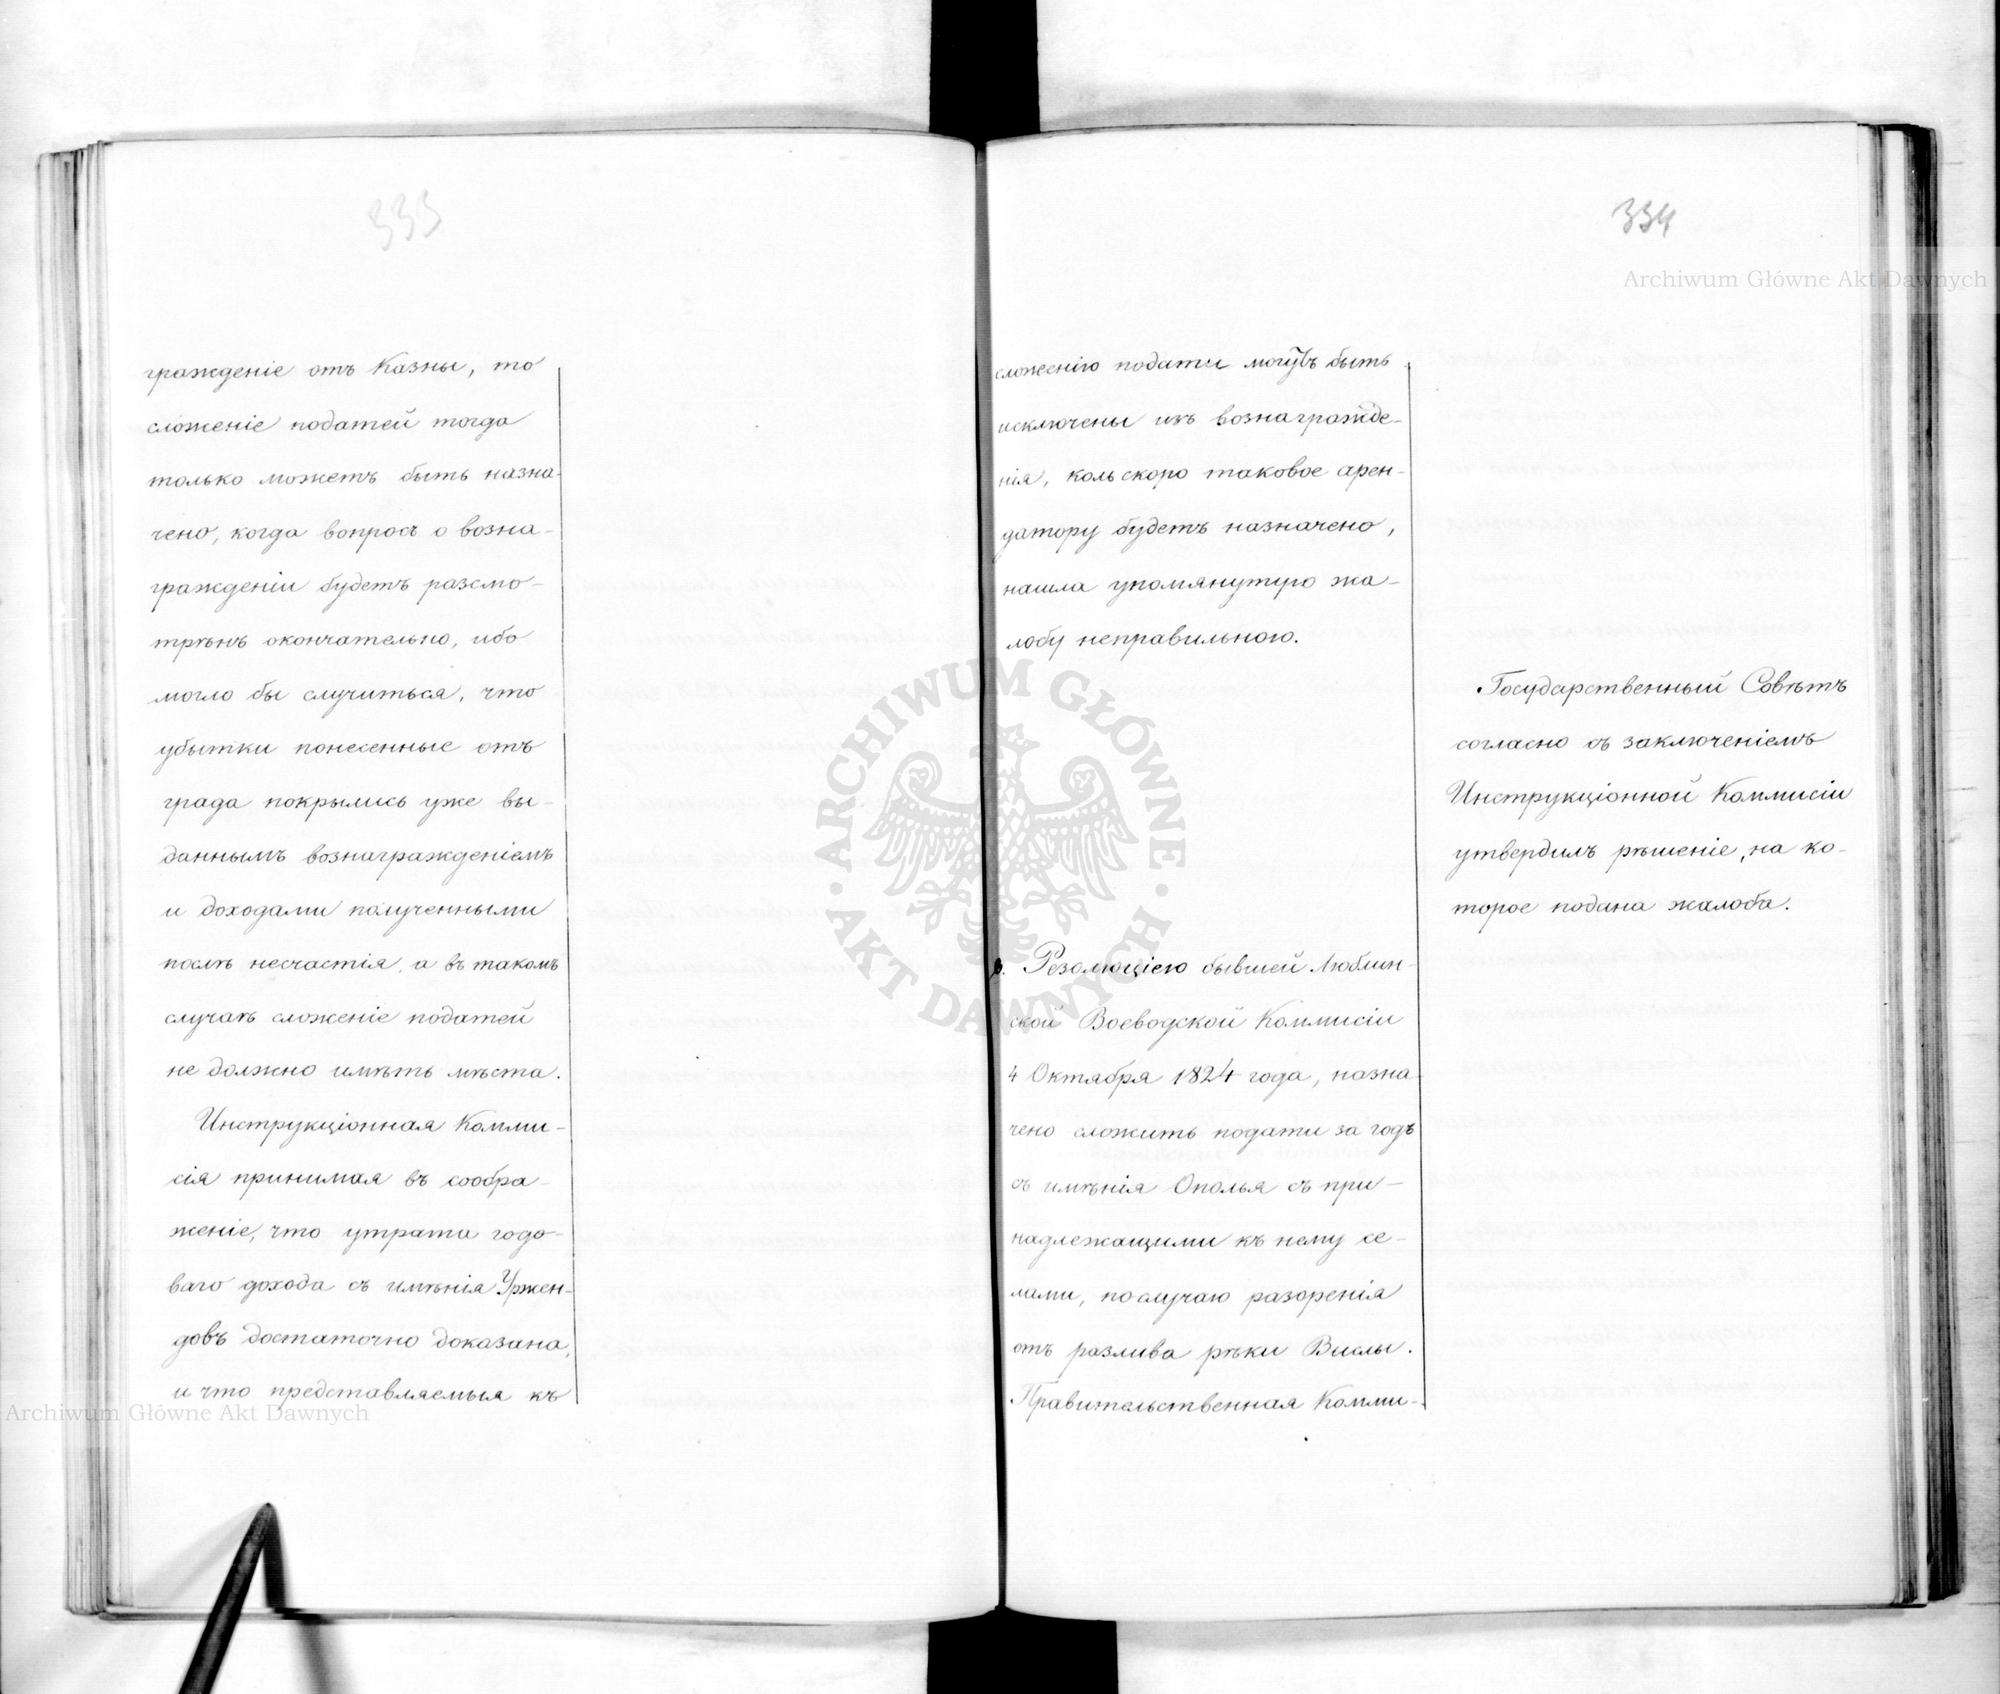 333
гражденіе отъ Казны, то
сложеніе податей тогда
только можетъ быть назна-
чено, когда вопросъ о возна-
гражденіи будетъ разсмо-
трѣнъ окончательно, ибо
могло бы случиться, что
убытки понесенные отъ
града покрылись уже вы-
даннымъ вознагражденіемъ
и доходами полученными
послѣ несчастія, а въ такомъ
случаѣ сложеніе податей
не должно имѣть мѣста.
Инструкціонная Комми-
сія принимая въ сообра-
женіе, что утрата годо-
ваго дохода съ имѣнія Уржен-
довъ достаточно доказана,
и что представляемыя къ
334
сложенію подати могутъ быть
исключены изъ вознагражде-
нія, коль скоро таковое арен-
датору будетъ назначено,
нашла упомянутую жа-
лобу неправильною.
Государственный Совѣтъ
согласно съ заключеніемъ
Инструкціонной Коммисіи
утвердилъ рѣшеніе, на ко-
торое подана жалоба.
Резолюціею бывшей Люблин-
ской Воеводской Коммисіи
4 Октября 1824 года, назна-
чено сложить подати за годъ
съ имѣнія Ополья съ при-
надлежащими къ нему се-
лами, по случаю разоренія
отъ разлива рѣки Вислы.
Правительственная Комми-
Archiwum Główne Akt Dawnych
Archiwum Główne Akt Dawnych
ARCHIWUM GŁÓWNE
AKT DAWNYCH